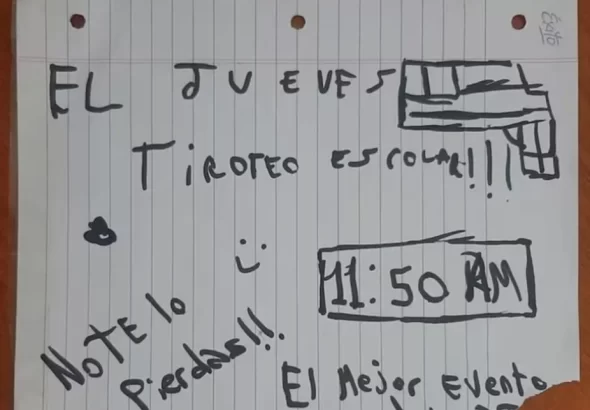 Éxito
EL JUEVES
TiROTEO ESCOLAR!!!
11:50 AM
NOTE lo
pierdas!!
El Mejor Evento